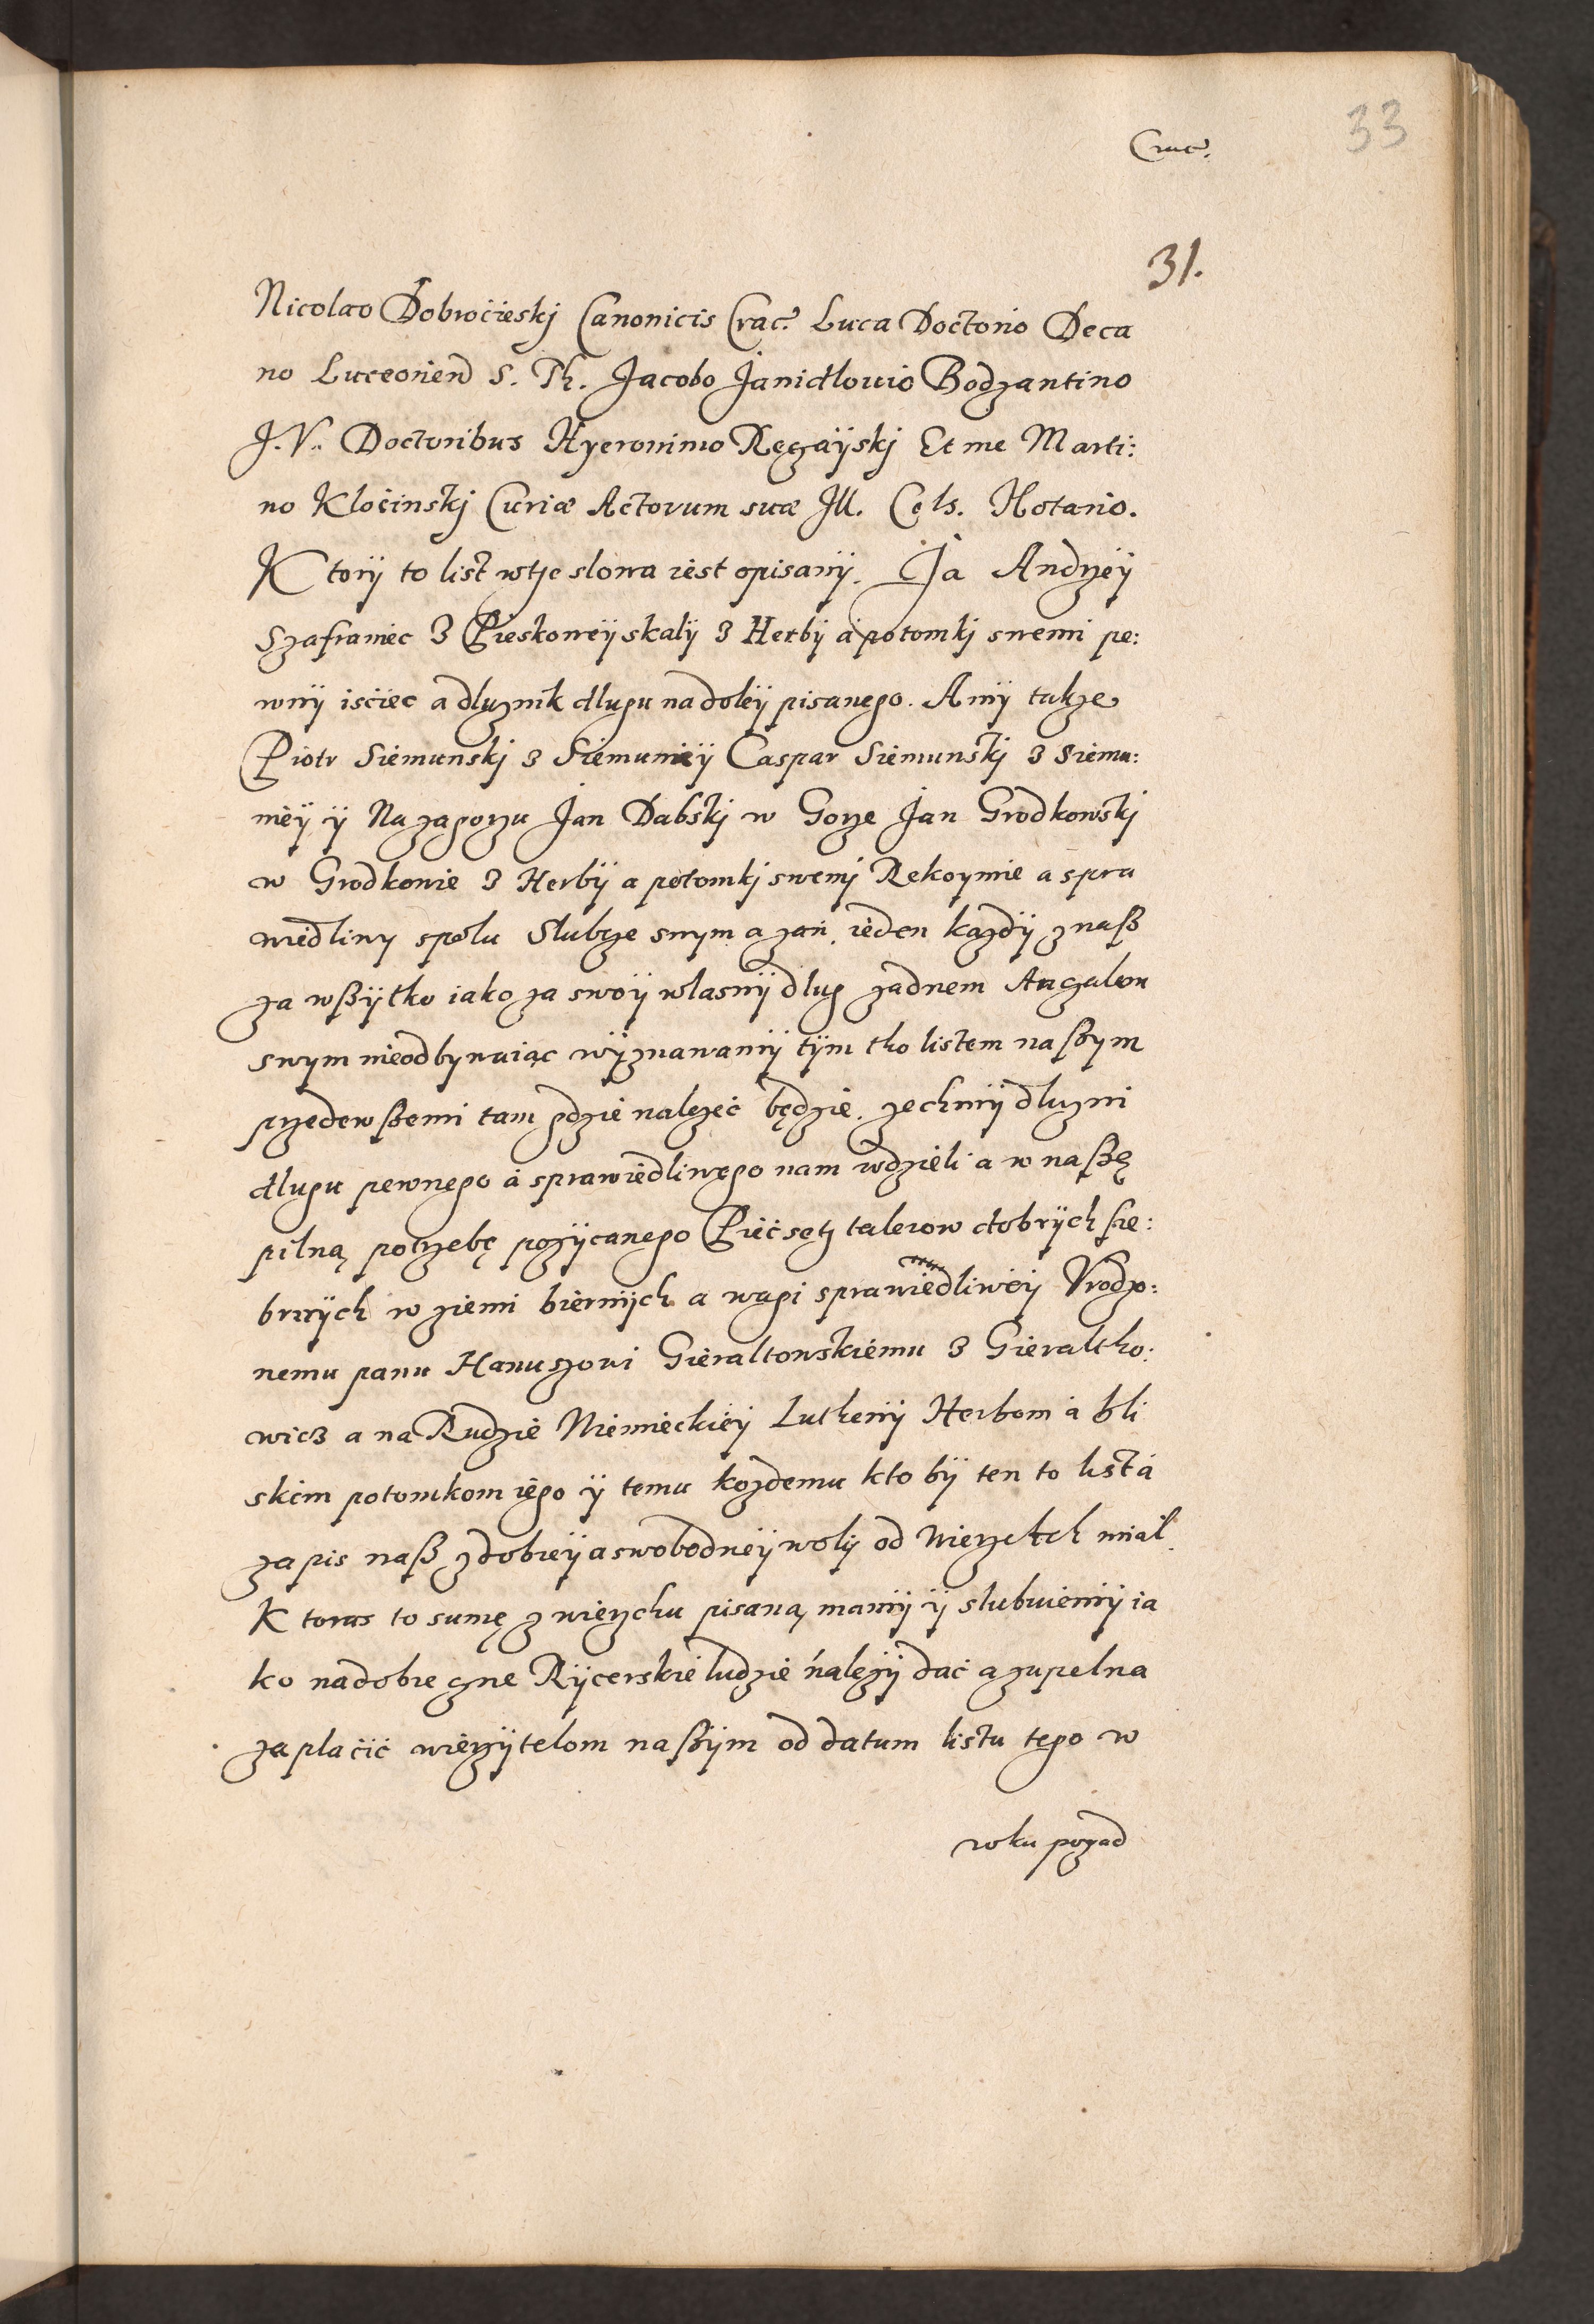 33
Crac.
31.
Nicolao Dobrocieskj Canonicis Crac. Luca Doctorio Deca
no Luceorien S. Th. Jacobo Janidlovio Bodzantino
J. V. Doctoribus Hyeronimo Regaÿskj Et me Marti:
no Klocinskj Curiæ Actorum suæ Ill. Cels. Notario.
Ktorÿ to list wtÿe slowa iest opisanÿ. Ja Andrzeÿ
Szafraniec z Pieskoweÿ skalÿ z Herbÿ á potomkj swemi pe:
wnÿ isciec a dluznik dlugu na doleÿ pisanego. A mÿ takze
Piotr Siemunskj z Siemunieÿ Caspar Siemunskj z Siemu:
nieÿ ÿ Na zagorzu Jan Dabskj w Gorze Jan Grodkowskj
w Grodkowie z Herbÿ a potomkj swemj Rekoymie a spra
wiedliwy spolu Slubcze snym a zań. ieden kazdÿ z naß
za wßÿtko iako za swoÿ wlasnÿ dlug zadnem Angalem
swym nieodbywaiąc wÿznawamÿ tÿm tho listem naßym
przedewßemi tam gdzie nalezeć będzie. zechmÿ dluzni
dlugu pewnego á sprawiedliwego nam wdzieli a w naßę
pilną potrzebę pozÿcanego Piećsetz talerow dobrÿch sre:
brnÿch w ziemi biernÿch a wagi sprawiedliweÿ Vrodzo:
nemu panu Hanuszowi Gieraltowskiemu z Gieraltho:
wicz a na Rudzie Niemieckieÿ Lutheni Herbom á bli
skim potomkom iego ÿ temu kozdemu kto bÿ ten to list á
zapis naß z dobreÿ a swobodneÿ wolÿ od nierzchch miał.
K toras to sumę z wierzchu pisaną mamÿ ÿ slubuiemÿ ia
ko na dobre czne Rÿcerskie ludzie należÿ dać a zupelna
zaplacić wierzÿtelom naßÿm od datum listu tego w
roku pozad